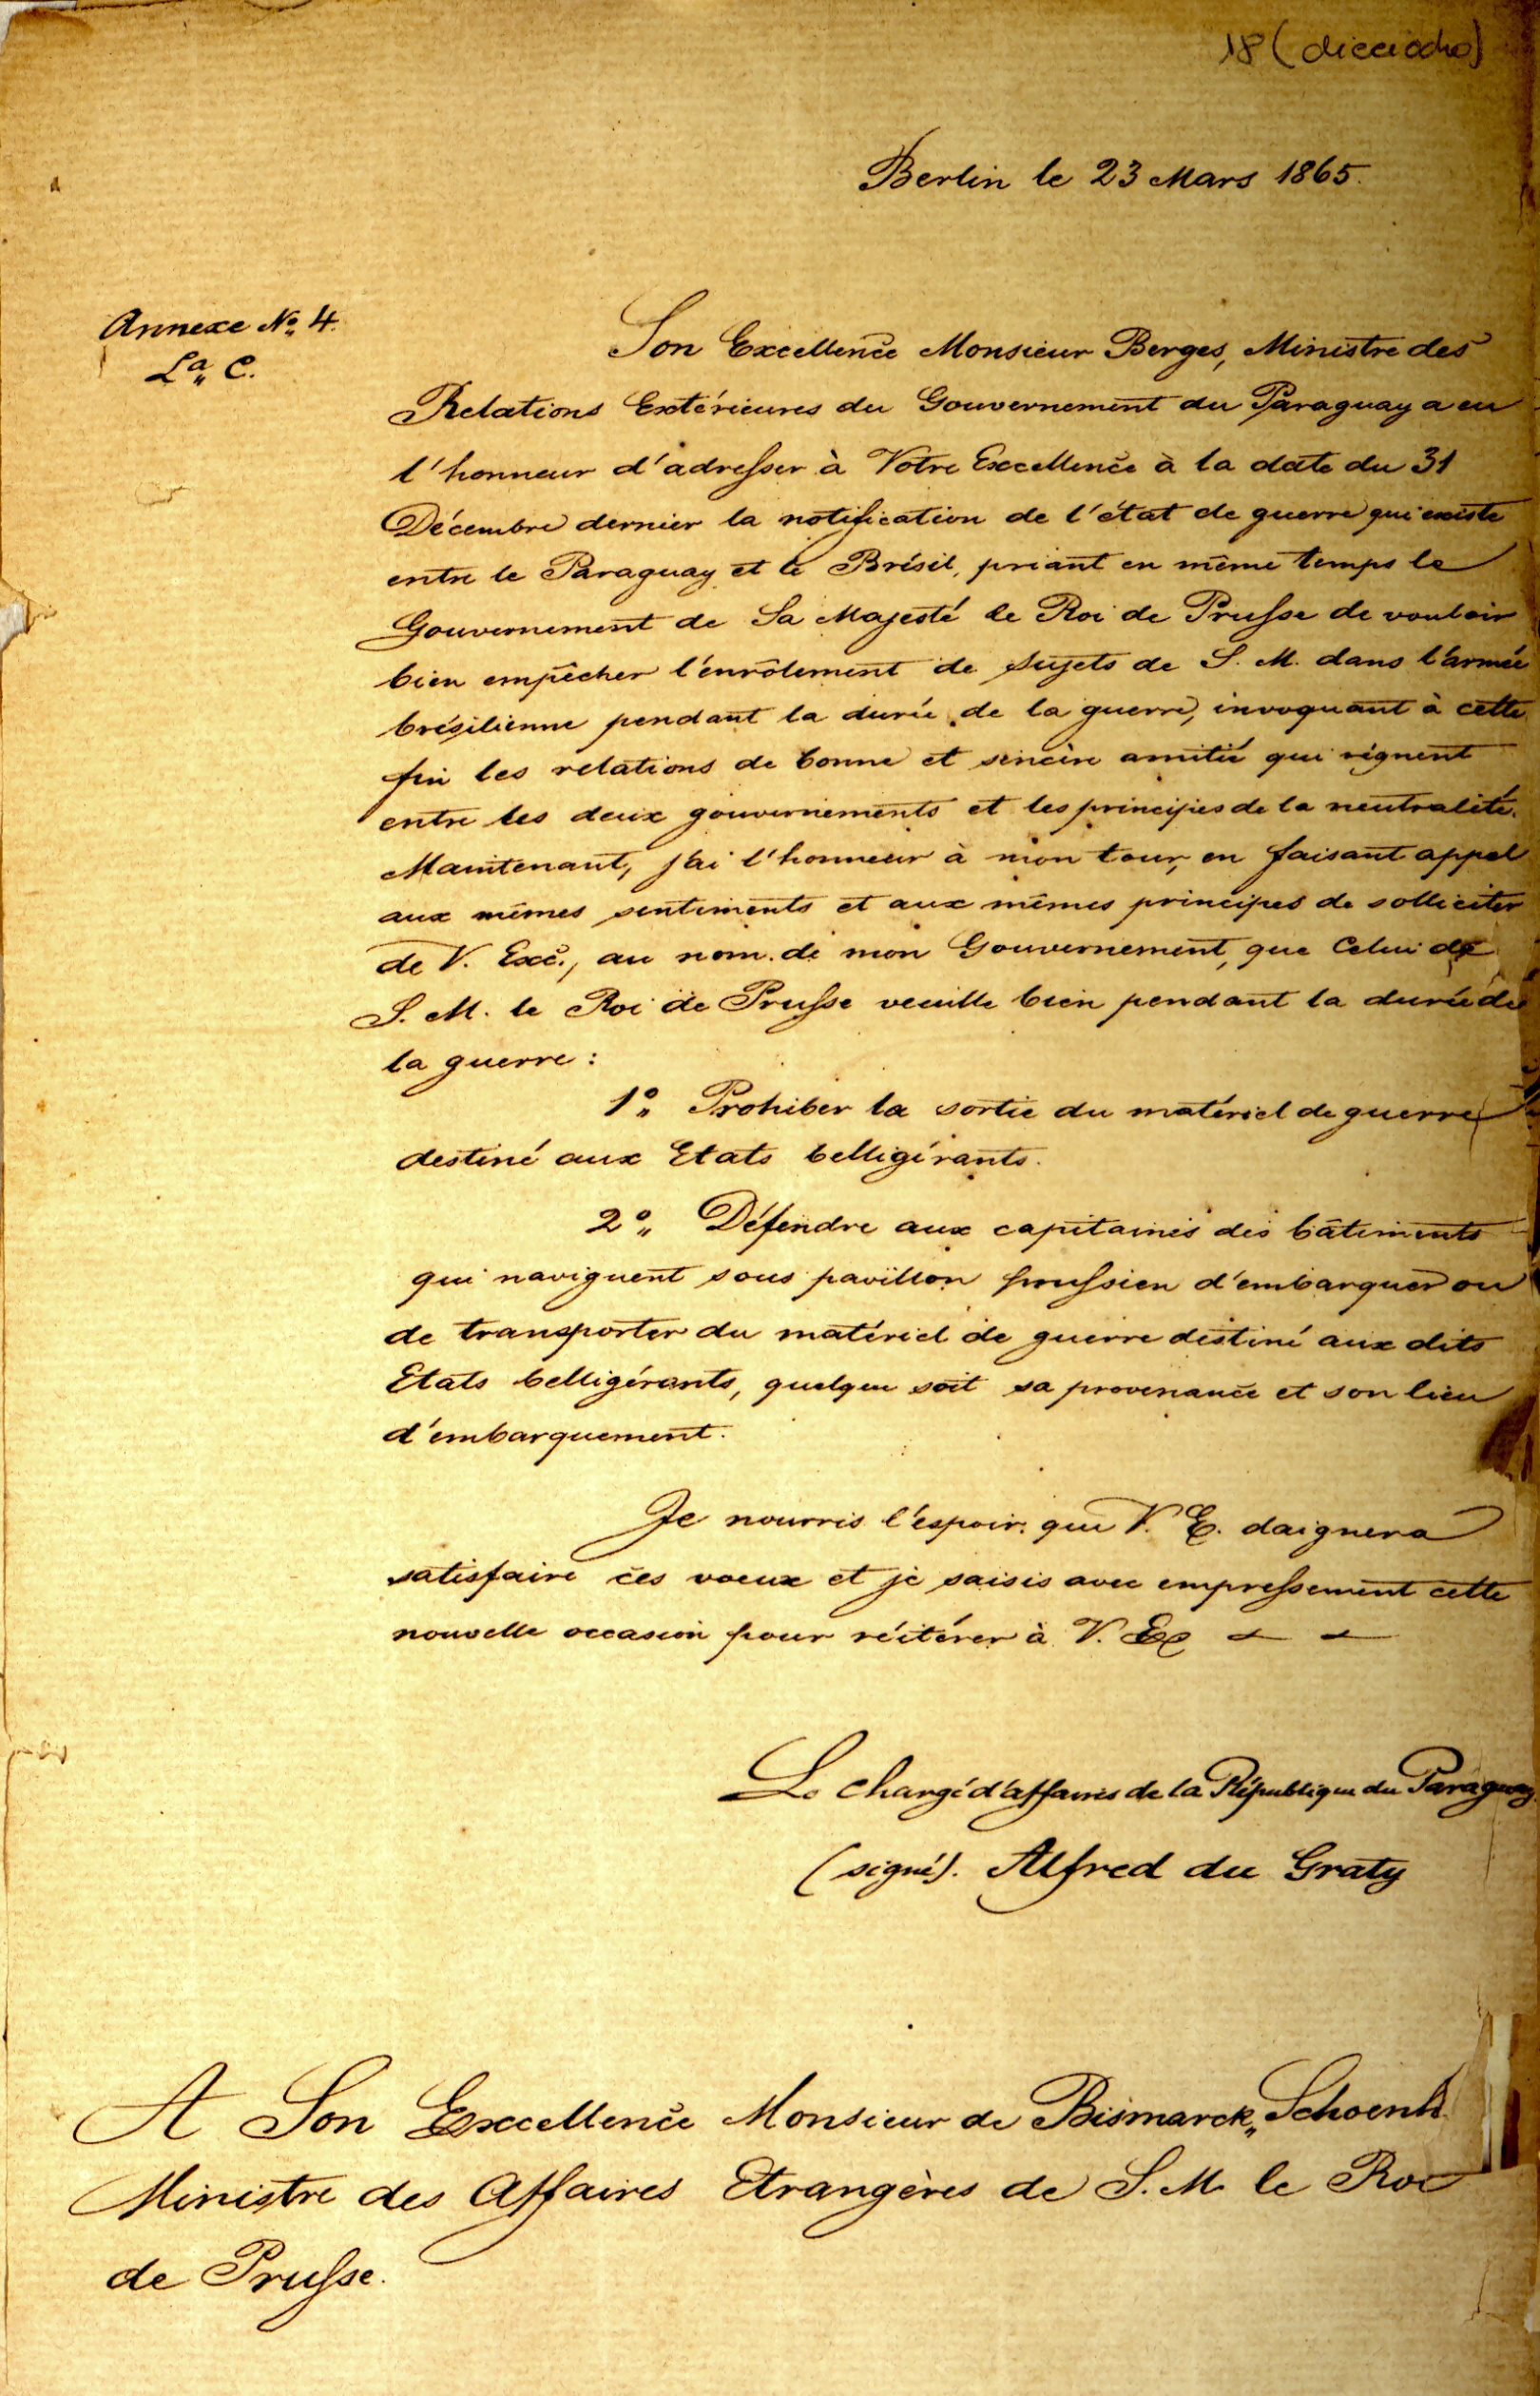 18 (dieciocho)
Berlin le 23 Mars 1865.
Annexe No. 4.
La C.
Son Excellence Monsieur Berges, Ministre des
Relations Extérieures du Gouvernement du Paraguay a eu
l'honneur d'adresser à Votre Excellence à la date du 31
Décembre dernier la notification de l'état de guerre qui existe
entre le Paraguay et le Brésil, priant en même temps le
Gouvernement de Sa Majesté le Roi de Prusse de vouloir
bien empêcher l'enrôlement de sujets de S. M. dans l'armée
brésilienne pendant la durée de la guerre, invoquant à cette
fin les relations de bonne et sincère amitié qui règnent
entre les deux gouvernements et les principes de la neutralité.
Maintenant, j'ai l'honneur à mon tour, en faisant appel
aux mêmes sentiments et aux mêmes principes de solliciter
de V. Exc., au nom de mon Gouvernement, que Celui de
S. M. le Roi de Prusse veuille bien pendant la durée de
la guerre :
1o. Prohiber la sortie du matériel de guerre
destiné aux Etats belligérants.
2o. Défendre aux capitaines des bâtiments
qui naviguent sous pavillon prussien d'embarquer ou
de transporter du matériel de guerre destiné aux dits
Etats belligérants, quelque soit sa provenance et son lieu
d'embarquement.
Je nourris l'espoir que V. E. daignera
satisfaire ces voeux et je saisis avec empressement cette
nouvelle occasion pour réitérer à V. Ex
Le chargé d'affaires de la République du Paraguay.
(signé). Alfred du Graty
A Son Excellence Monsieur de Bismarck, Schoenh
Ministre des Affaires Etrangères de S. M. le Roi
de Prusse.